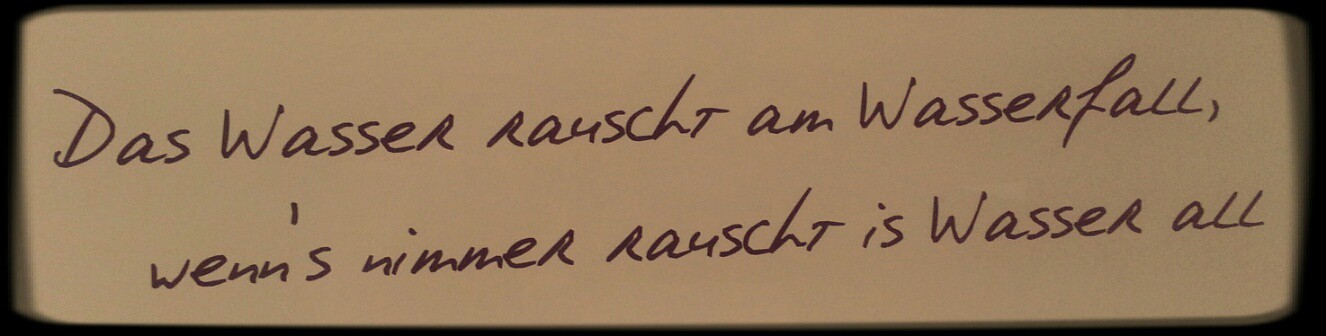 Das Wasser rauscht am Wasserfall,
wenn's nimmer rauscht is Wasser all